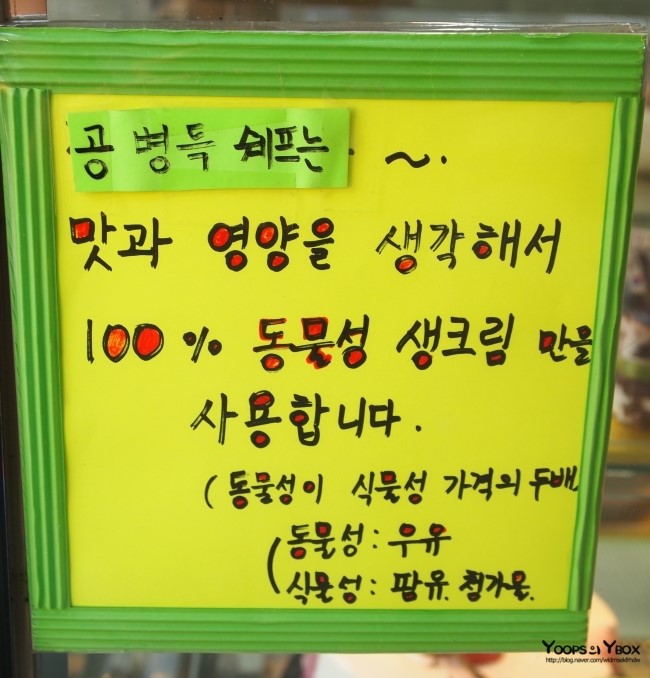 공병득 쉐프는 ~.
맛과 영양을 생각해서
100% 동물성 생크림 만을
사용합니다.
(동물성이 식물성 가격의 두배
(동물성 : 우유
식물성 : 팜유. 첨가물.
YOOPS의 YBOX